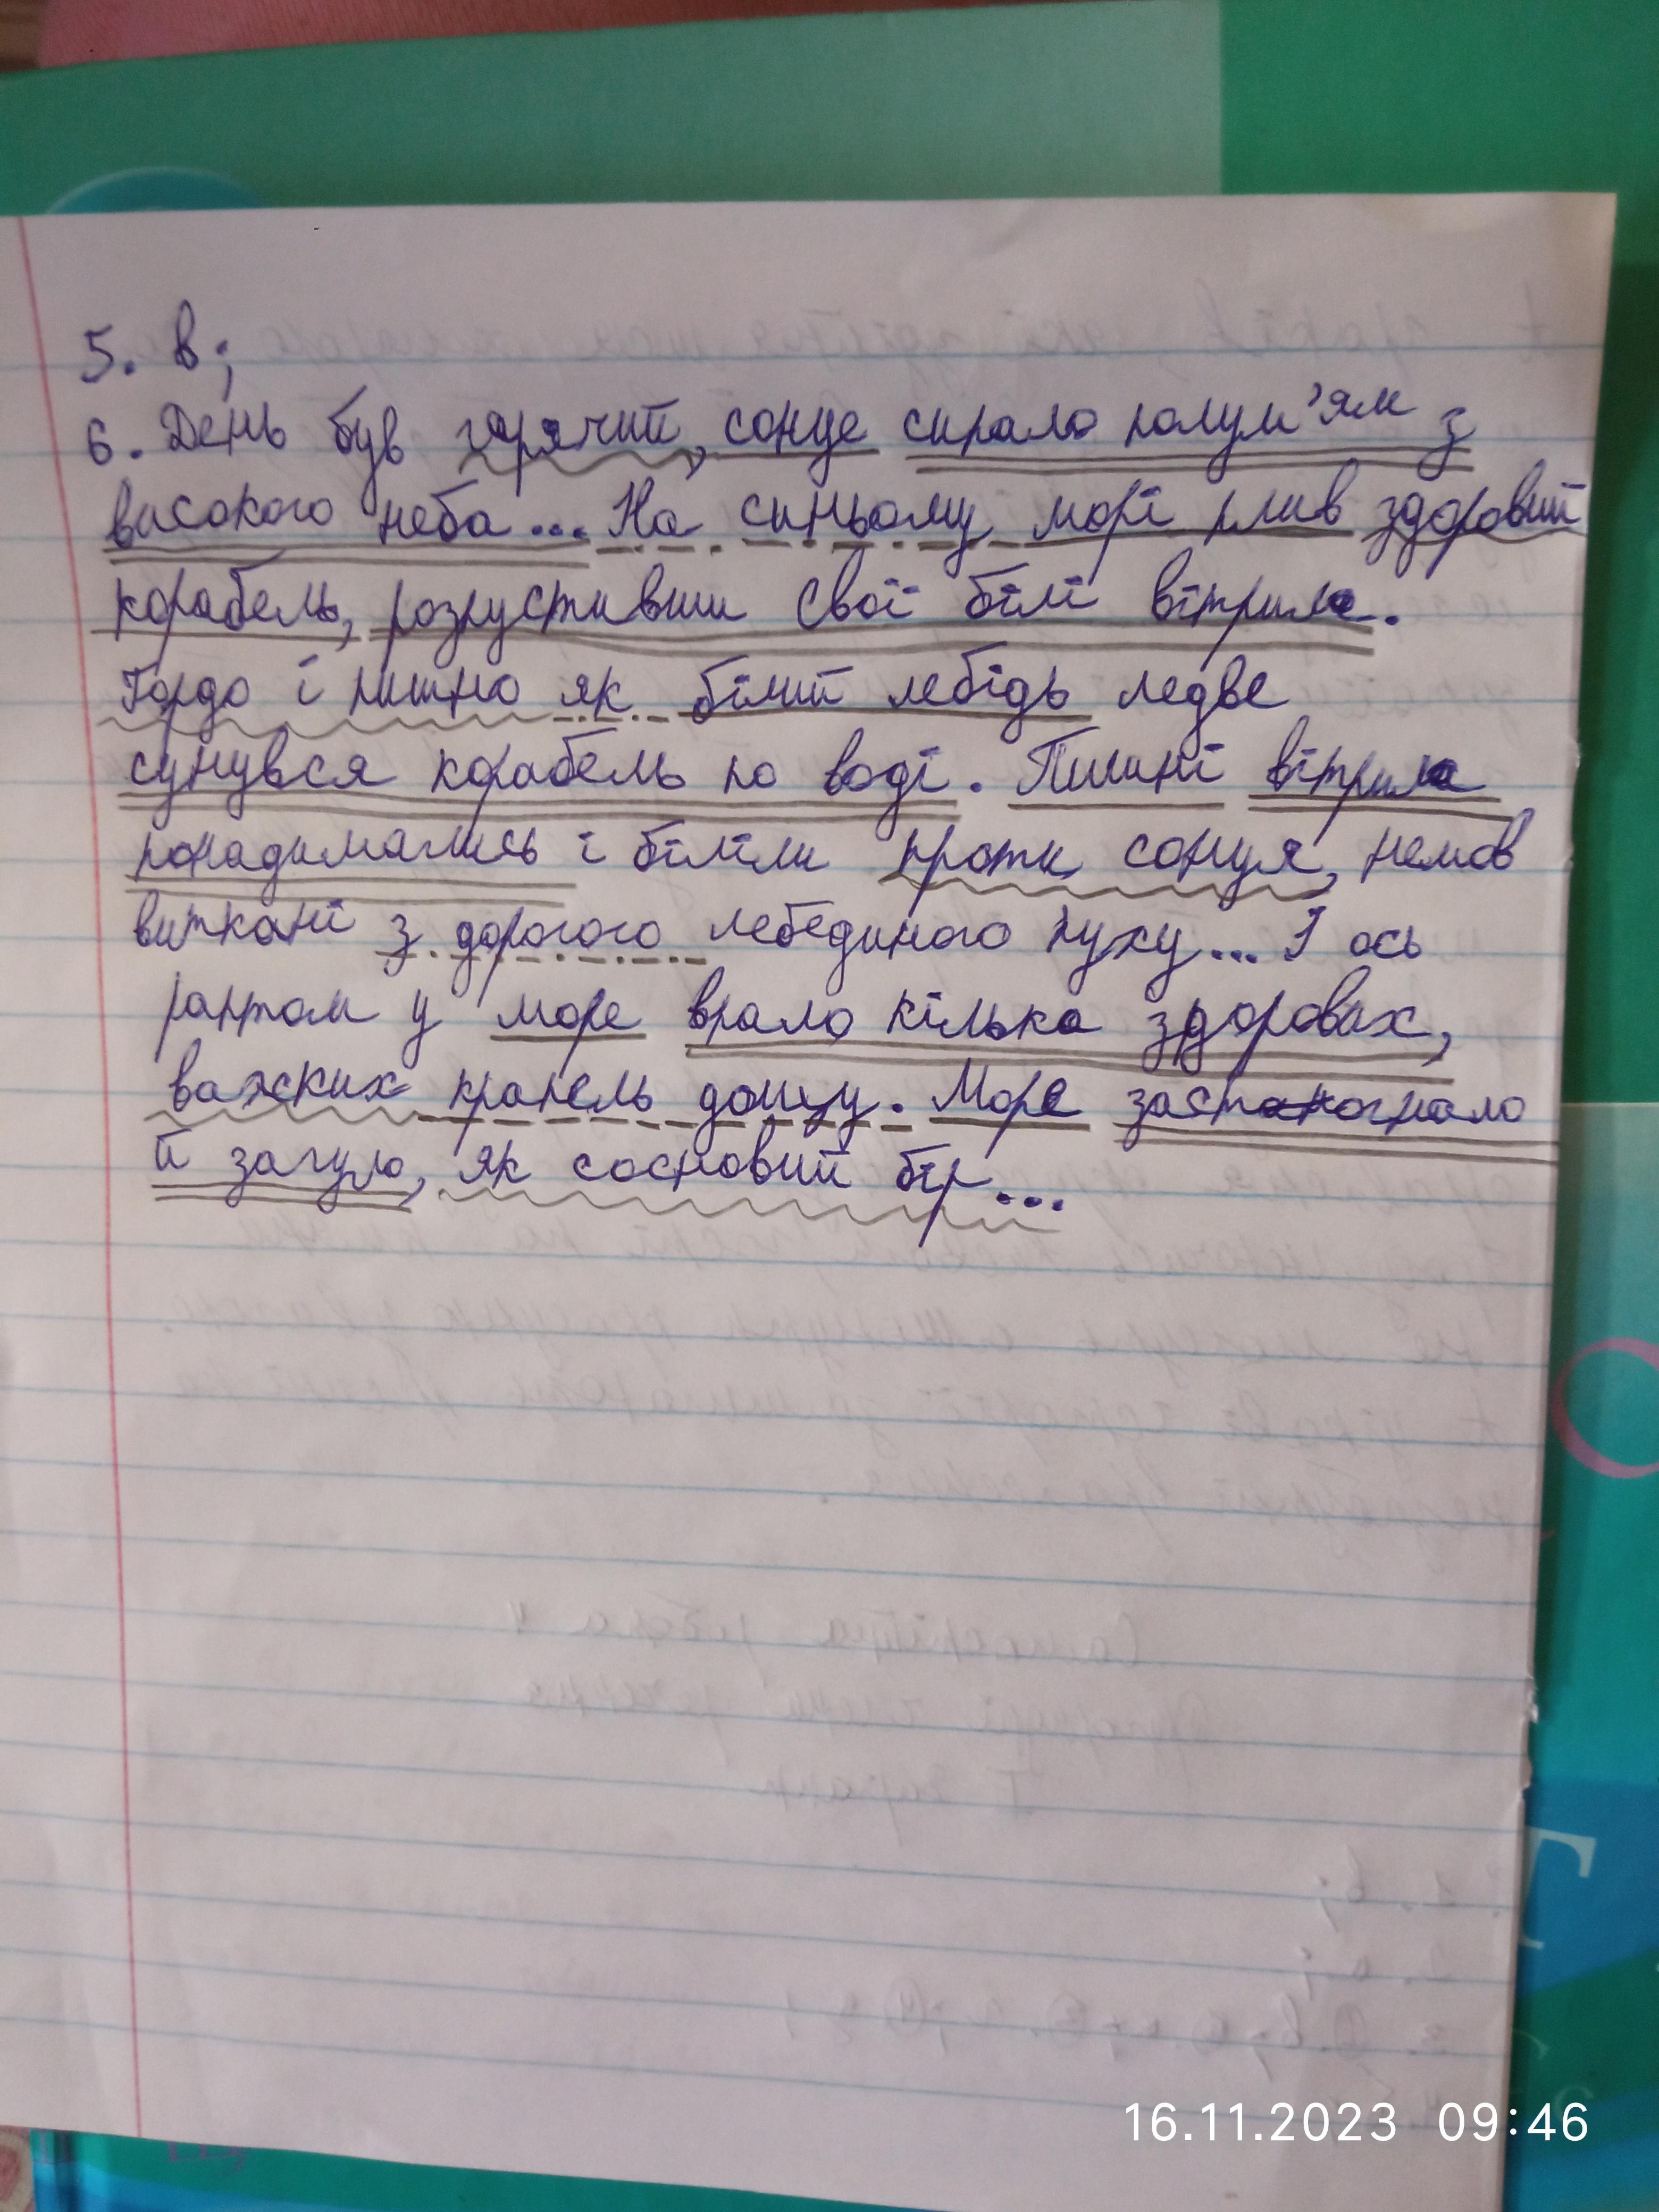 5. в;
6. День був гарячий, сонце сипало полум'ям з
високого неба... На синьому морі плив здоровий
корабель, розпустивши свої білі вітрила.
Гордо і пишно як білий лебідь ледве
сунувся корабель по воді. Пишні вітрила
понадимались і біліли проти сонця, немов
виткані з дорогого лебединого пуху... І ось
раптом у море впало кілька здорових,
важких крапель дощу. Море
й загуло, як сосновий бір...
16.11.2023 09:46